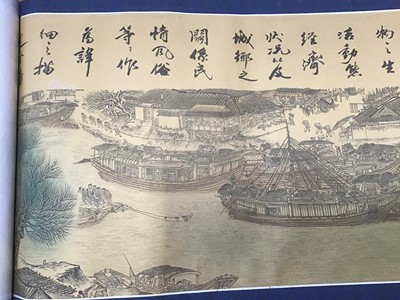 物之生
活動態
經濟
狀況以及
城鄉之
關係民
情風俗
等等作
為詳
細之描